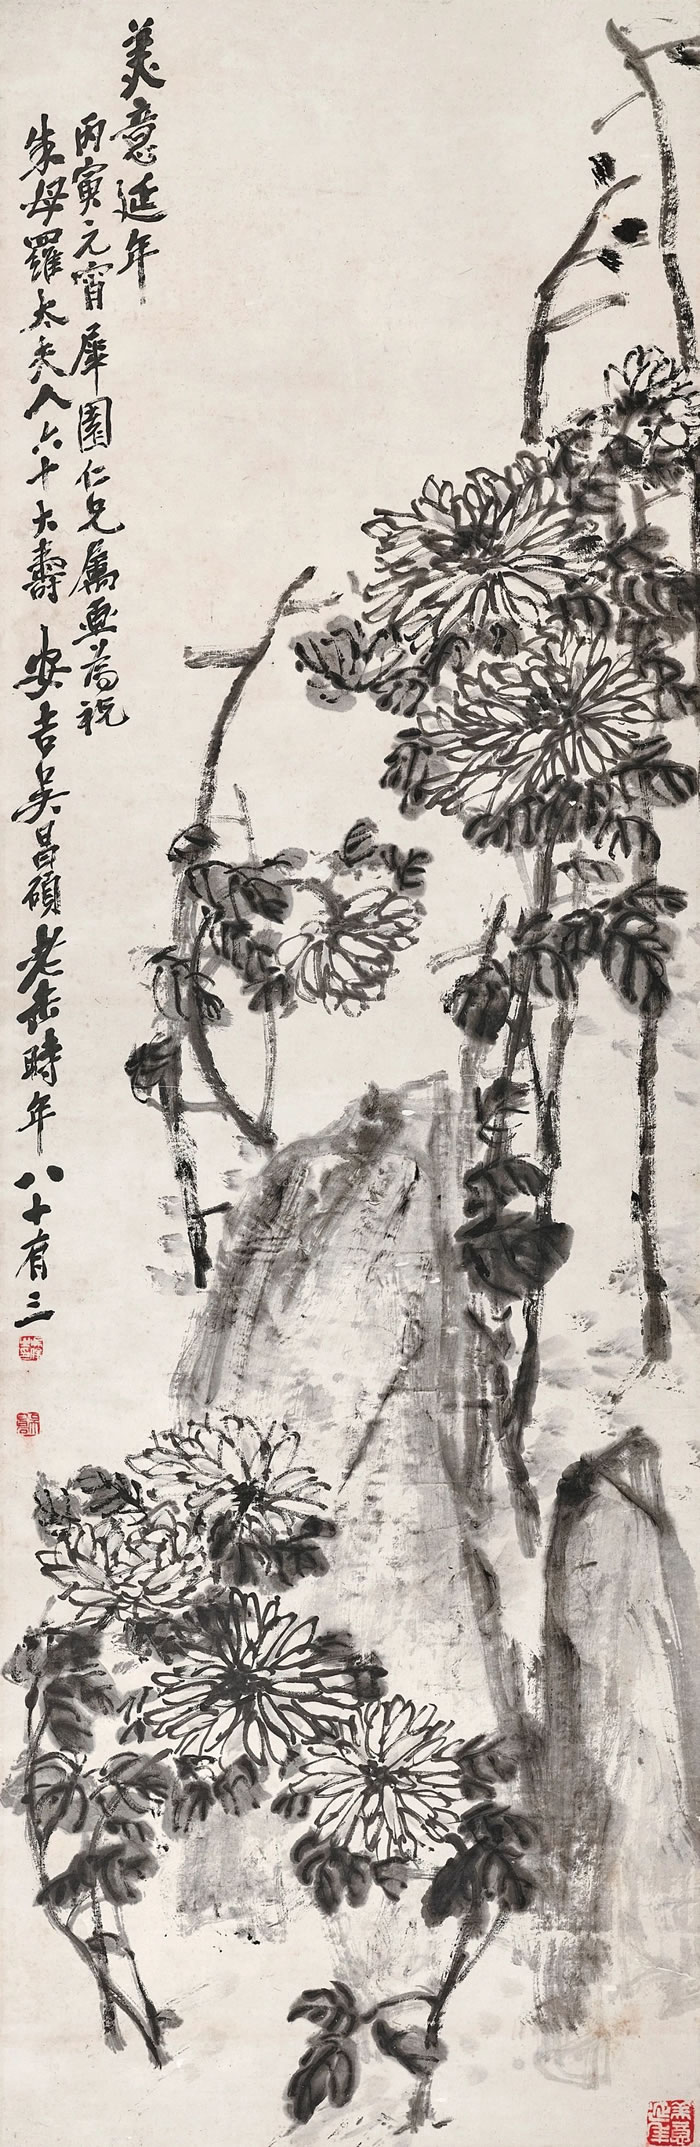 美意延年
丙寅元宵犀園仁兄屬画為祝
朱母羅太夫人六十大壽 安吉吳昌碩老缶時年八十有三
美意
延年